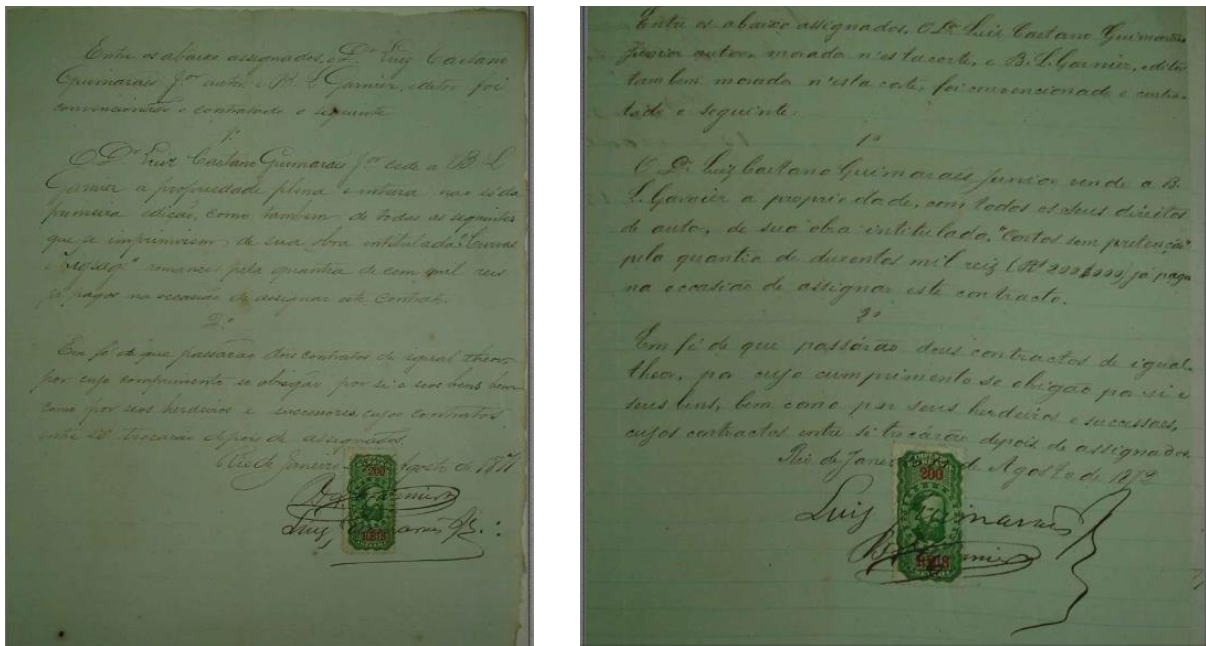 Entre os abaixo assignados, o Dr. Luiz Caetano
Guimaraes Jor autor, e B. L. Garnier, editor foi
convencionado e contratado o seguinte
1º
O Dr Luiz Caetano Guimaraes Jor cede a B. L
Garnier a propriedade plena e inteira não só da
primeira edição, como tambem de todas as seguintes
que se imprimirem, de sua obra intitulada: "Curvas
e Zigzag" romances pela quantia de cem mil reis
já pagos na occasião de assignar este contrato.
2º
Em fé de que passarão dois contratos de igual theor
por cujo comprimento se obrigão por si e seos bens bem
como por seos herdeiros e successores, cujos contratos
entre si trocarão depois de assignados.
Rio de Janeiro Agosto de 1871
200
B. L. Garnier
Luiz Guimarães Jr.
REIS
Entre os abaixo assignados, O Dr. Luiz Caetano Guimarães
Junior autor, morado n'esta corte, e B. L. Garnier, editor
tambem morado n'esta corte, foi convencionado e contra-
tado o seguinte.
1º
O Dr. Luiz Caetano Guimaraes Junior vende a B.
L. Garnier a propriedade, com todos os seus direitos
de autor, de sua obra intitulado, "Contos sem pretenção"
pela quantia de duzentos mil reiz já pago
na occasião de assignar este contracto.
2º
Em fé de que passárão dous contractos de igual
theor, por cujo cumprimento se obrigão por si e
seus bens, bem como por seus herdeiros e sucessores,
cujos contractos entre si trocárão depois de assignados
Rio de Janeiro de Agosto de 1872
200
Luiz Guimarães
B. L. Garnier
REIS